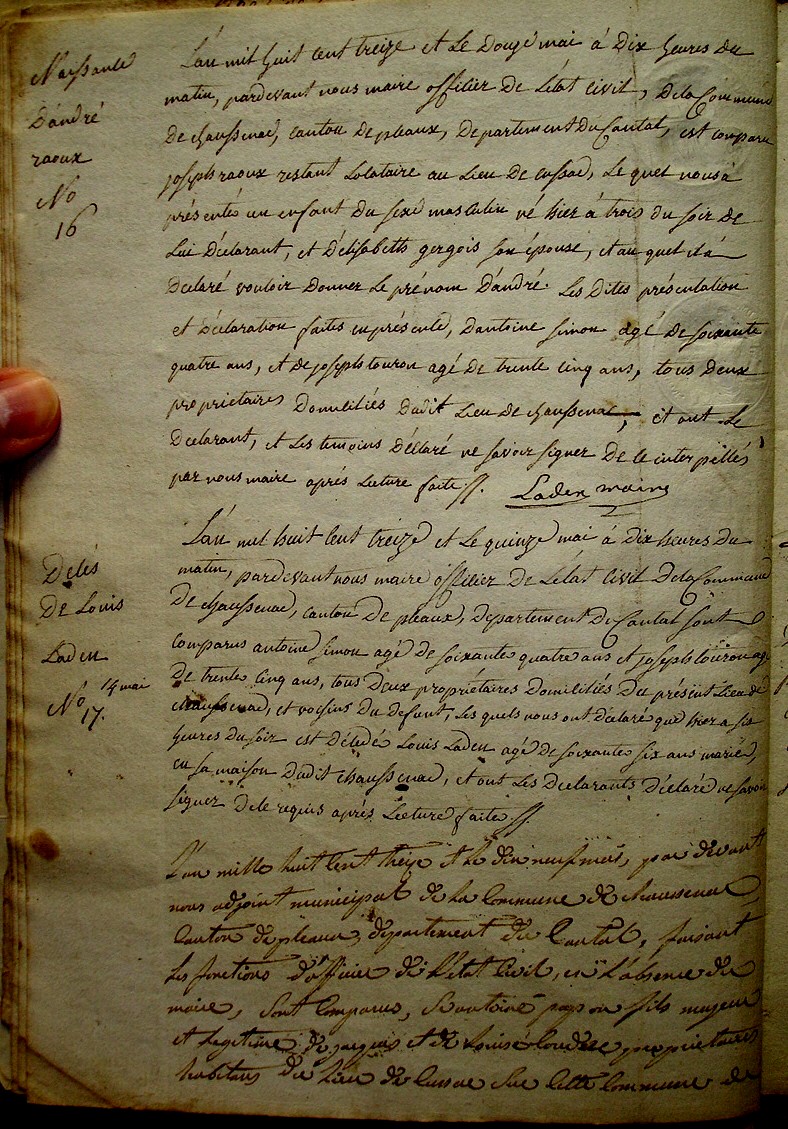 Naissance
D'andré
raoux
No
16
L'an mil huit cent treize et Le Douze mai à Dix heures du
matin, pardevant nous maire officier de L'état civil, De la Commune
De chaussenac, canton de pleaux, Departement Du Cantal, est comparu
joseph raoux restant Locataire au Lieu De cussac, Le quel nous à
présenté un enfant Du sexe masculin né hier à trois du soir De
Lui Déclarant, et D'élisabeth gergois son épouse, et au quel il à
Declaré vouloir Donner Le prénom D'andré. Les Dites présentation
et Déclaration faites en présence, D'antoine simon agé De soixante
quatre ans, et De joseph touron agé De trente cinq ans, tous Deux
proprietaires Domiciliés Dudit Lieu De chaussenac, et ont Le
Declarant, et Les temoins Déclaré ne savoir signer De ce interpellés
par nous maire aprés Lecture faite //. Laden maire
Décés
De Louis
Laden
No 14 mai
17.
L'an mil huit cent treize et Le quinze mai à Dix heures Du
matin, pardevant nous maire officier De L'état civil De la Commune
De chaussenac, canton De pleaux, Departement Du Cantal sont
comparus antoine simon agé De soixante quatre ans et joseph touron agé
De trente cinq ans, tous Deux propriétaires Domiciliés Du présent Lieu de
chaussenac, et voisins Du Defunt, Les quels nous ont Déclaré que hier a six
heures Du soir est Décédé Louis Laden agé De soixante six ans marié,
en sa maison Dudit chaussenac, et ont Les Declarants Déclaré ne savoir
signer De ce requis aprés Lecture faite. //.
L'an mille huit cent treize et Le dix neuf mai, par devant
nous adjoint municipal de la Commune de chaussenac
Canton de pleaux, département du Cantal, faisant
Les fonctions d'officier de l'état Civil, en L'absence du
maire, sont Comparus, antoine fils majeur
et Legitime de jacques et de Louise proprietaires
habitans du Lieu de Cussac sur Cette Commune de